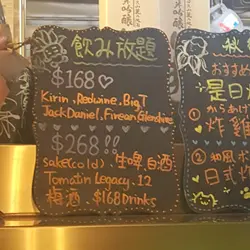 飲み放題
$168♡
Kirin. Redwine. Big T
Jack Daniel. Finean Glenshire
$268!!
sake(cold). 生啤. 白酒
Tomatin Legacy. 12
梅酒. $168 Drinks
おすすめ
星日
から
炸雞
和風
日式炸